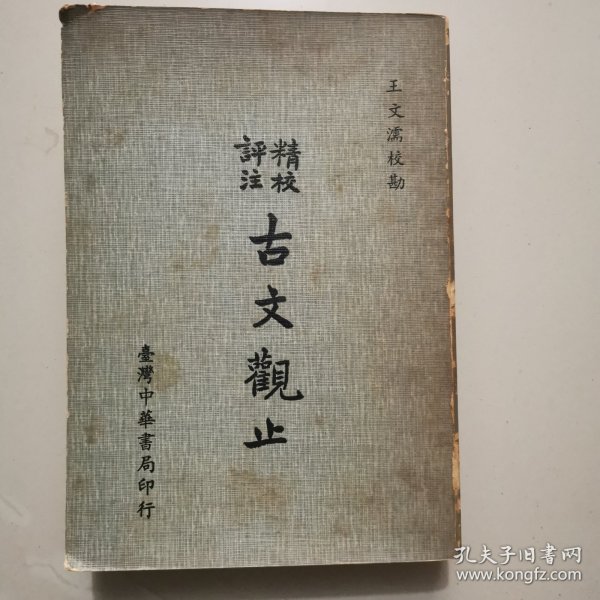 王文濡校勘
精校
評注
古文觀止
臺灣中華書局印行
孔夫子旧书网
www.kongfz.com